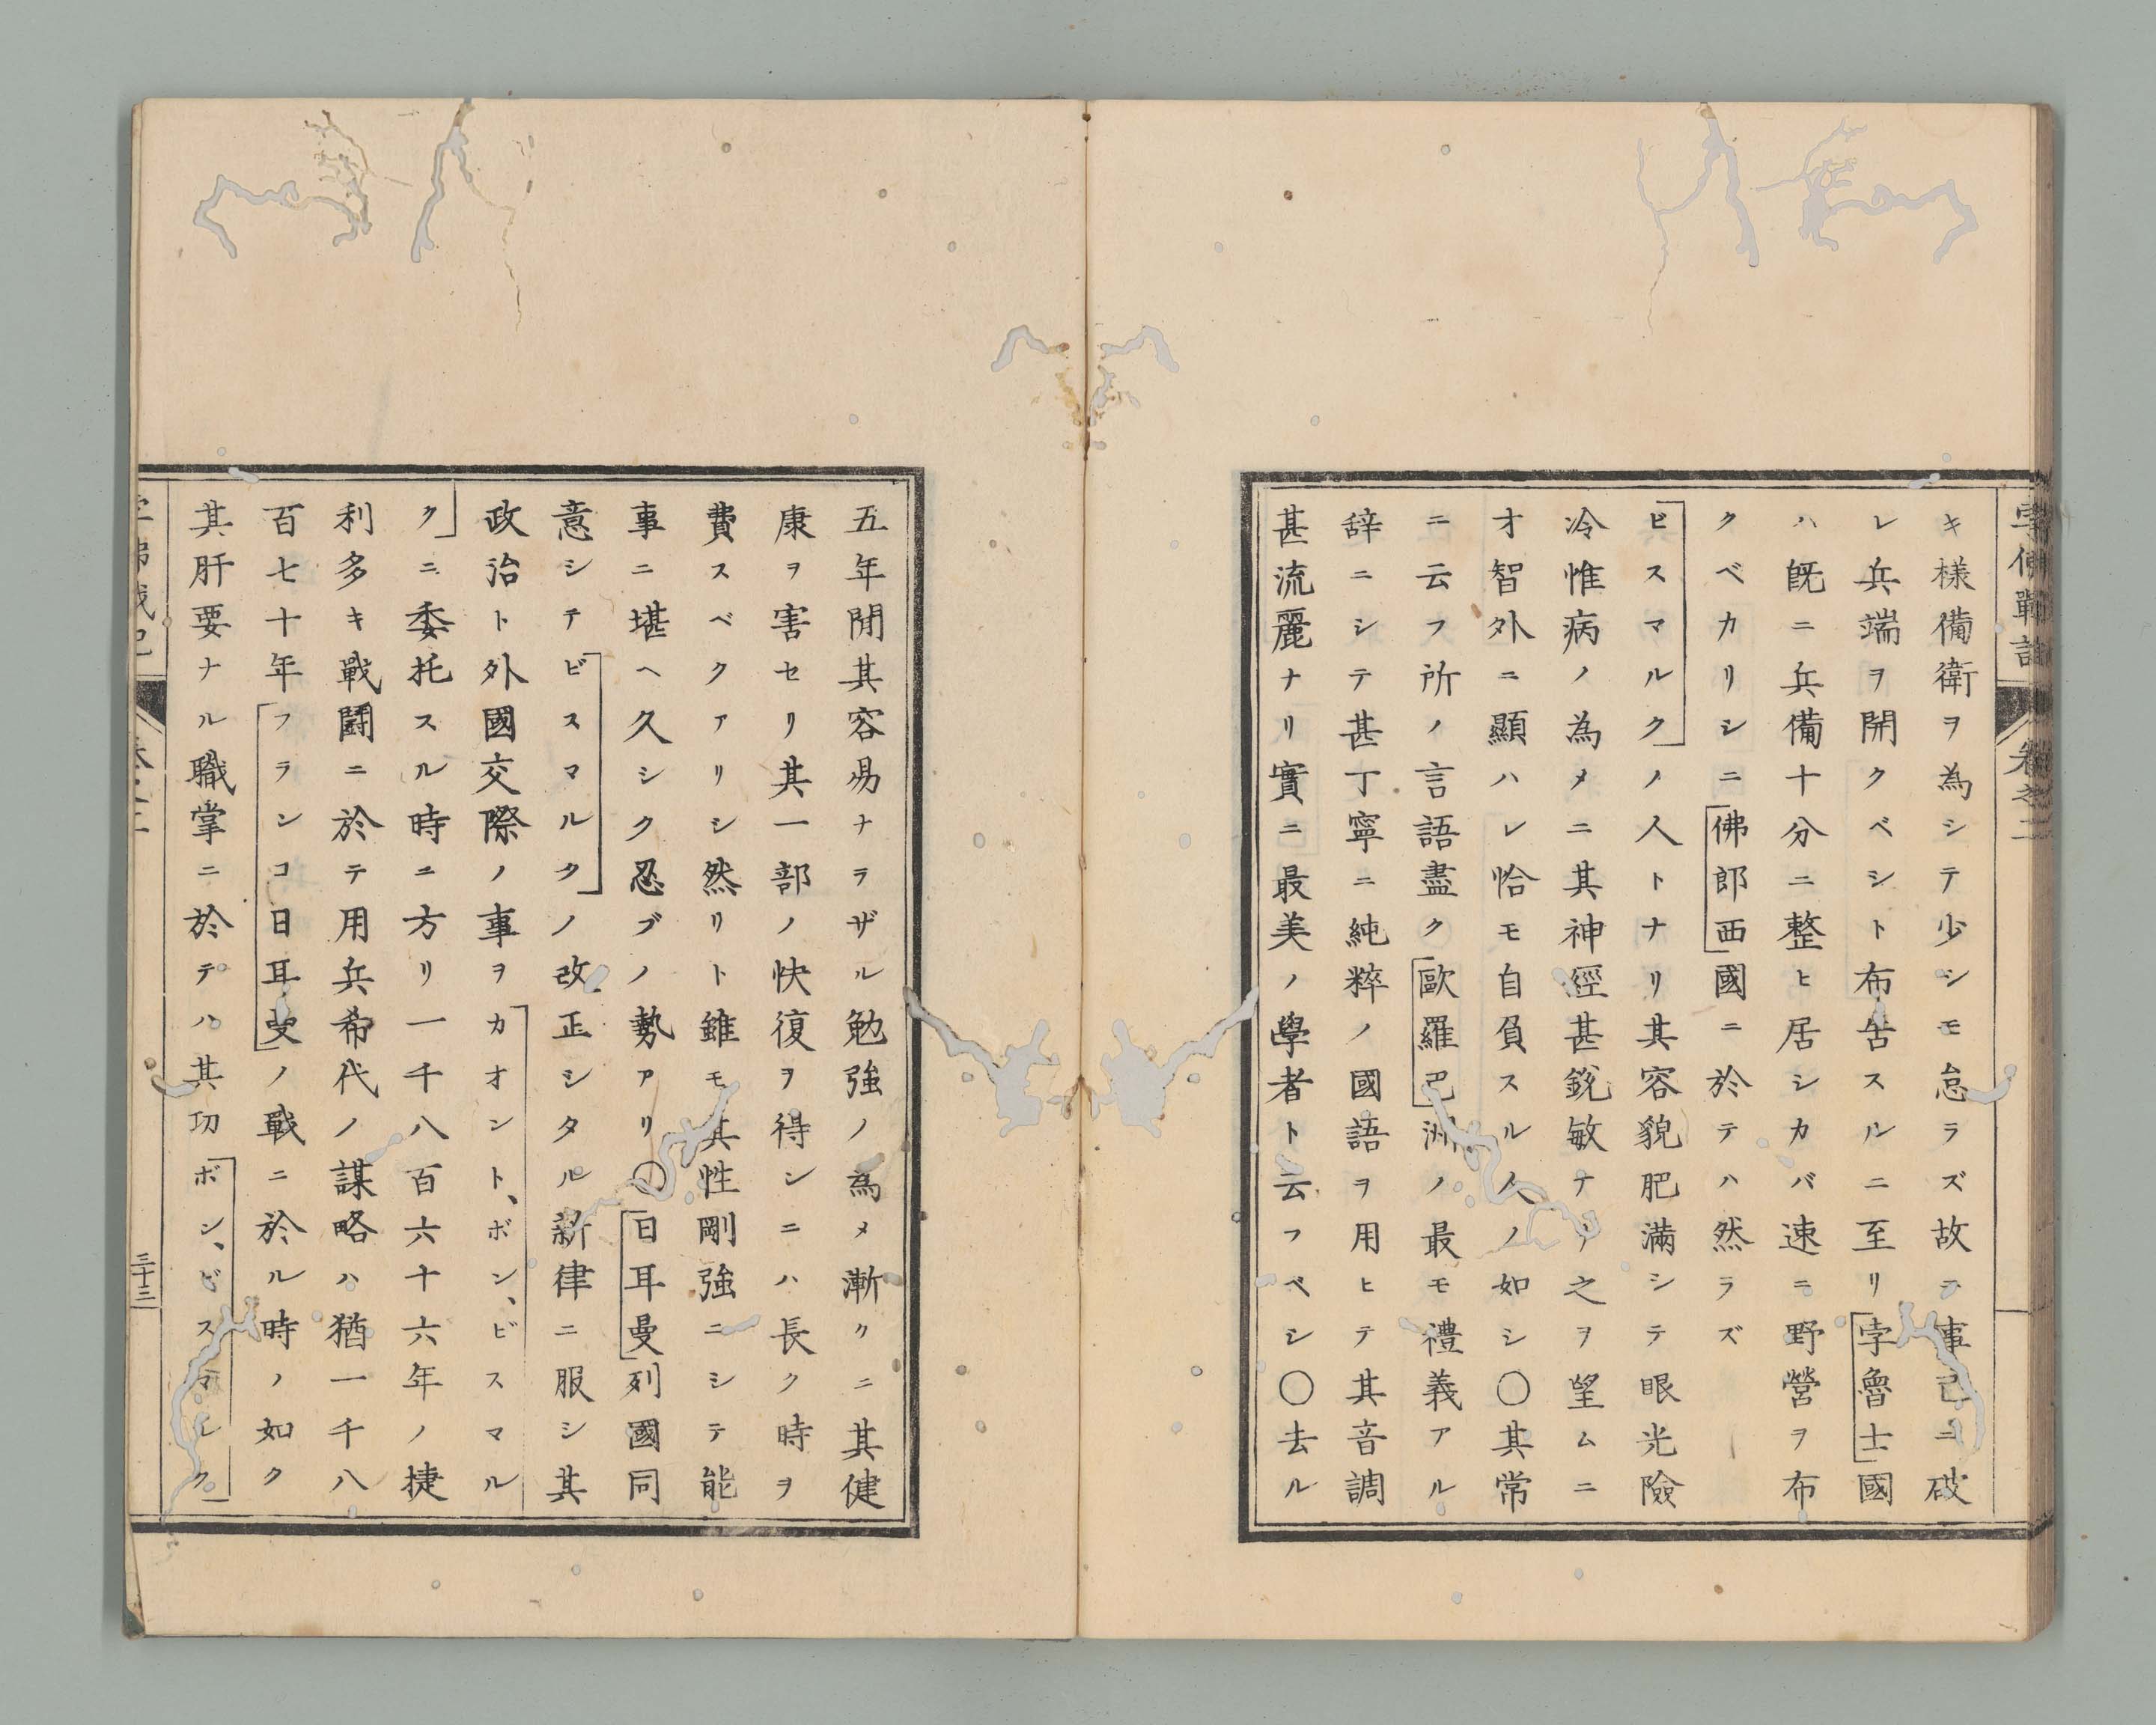 孛佛戰記
卷之二
キ様備衛ヲ為シテ少シモ怠ラズ故ニ事已ニ破
レ兵端ヲ開クベシト布吿スルニ至リ孛魯士國
ハ既ニ兵備十分ニ整ヒ居シカバ速ニ野營ヲ布
クベカリシニ佛郎西國ニ於テハ然ラズ
ビスマルクノ人トナリ其容貌肥滿シテ眼光險
冷惟病ノ為メニ其神經甚銳敏ナリ之ヲ望ムニ
才智外ニ顯ハレ恰モ自負スル人ノ如シ〇其常
ニ云フ所ノ言語盡ク歐羅巴洲ノ最モ禮義アル
辞ニシテ甚丁寧ニ純粹ノ國語ヲ用ヒテ其音調
甚流麗ナリ實ニ最美ノ學者ト云フベシ〇去ル
五年間其容易ナラザル勉強ノ為メ漸クニ其健
康ヲ害セリ其一部ノ快復ヲ得ンニハ長ク時ヲ
費スベクアリシ然リト雖モ其性剛強ニシテ能
事ニ堪ヘ久シク忍ブノ勢アリ〇日耳曼列國同
意シテビスマルクノ改正シタル新律ニ服シ其
政治ト外國交際ノ事ヲカオント、ボン、ビスマル
クニ委托スル時ニ方リ一千八百六十六年ノ捷
利多キ戰鬪ニ於テ用兵希代ノ謀略ハ猶一千八
百七十年フランコ日耳曼ノ戰ニ於ル時ノ如ク
其肝要ナル職掌ニ於テハ其功ボン、ビスマルク
三十三